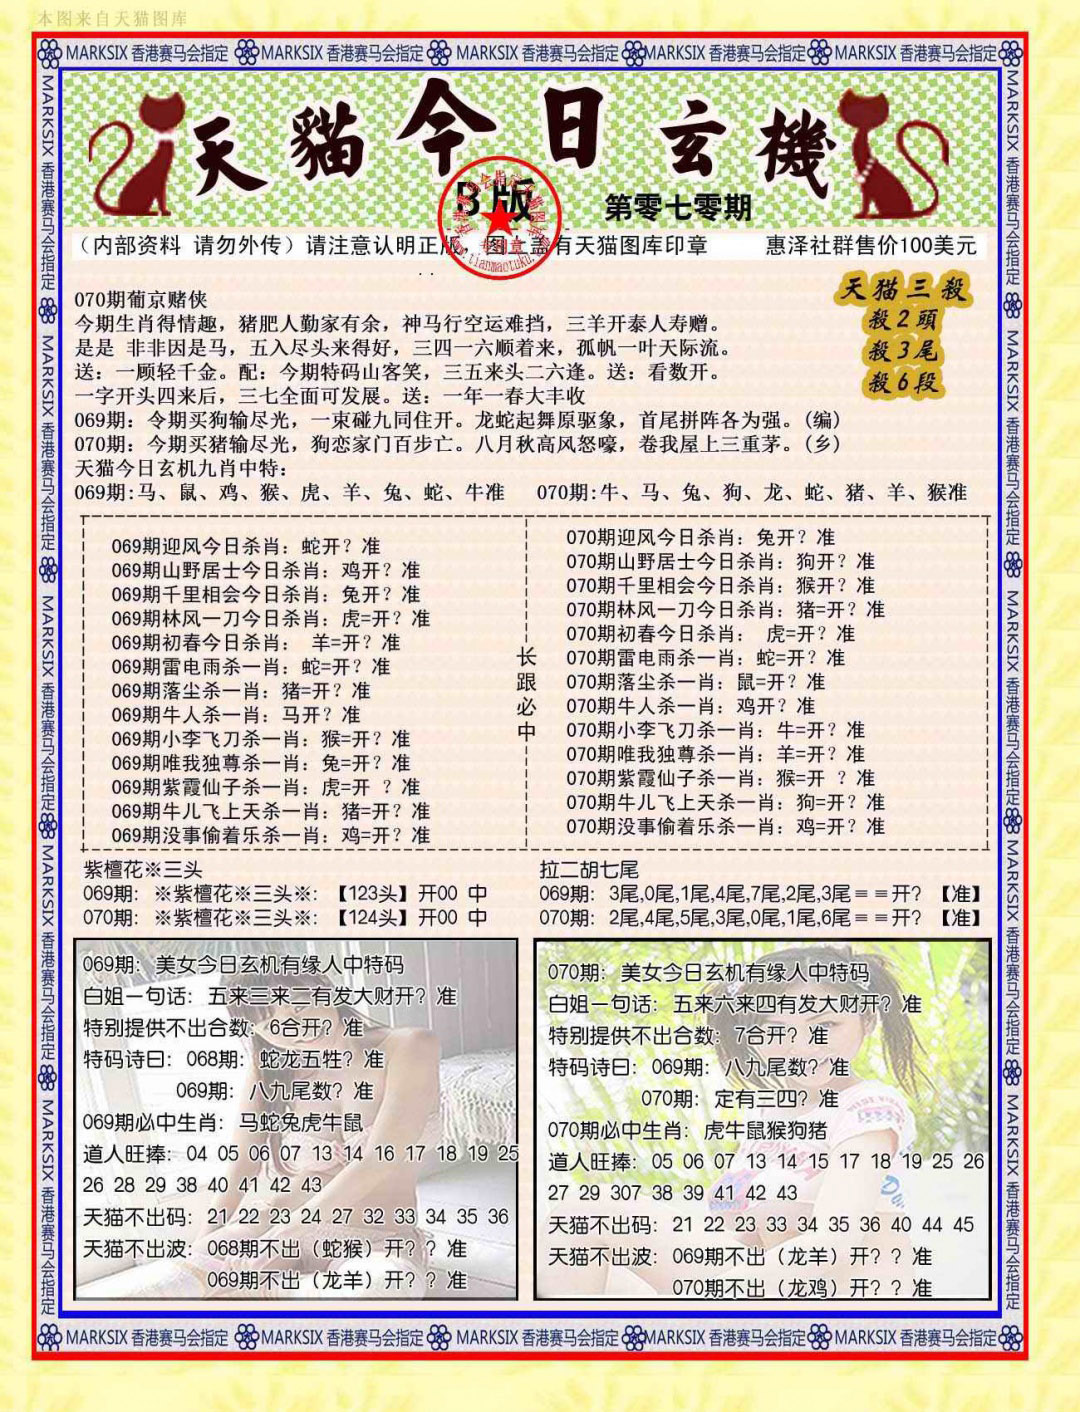 本图来自天猫图库
MARKSIX 香港赛马会指定 MARKSIX 香港赛马会指定 MARKSIX 香港赛马会指定 MARKSIX 香港赛马会指定 MARKSIX 香港赛马会指定
MARKSIX 香港赛马会指定 MARKSIX 香港赛马会指定 MARKSIX 香港赛马会指定 MARKSIX 香港赛马会指定 MARKSIX 香港赛马会指定
天猫今日玄機
B版
第零七零期
专用章
www.tianmaotuku.com
(内部资料 请勿外传)请注意认明正版,图上盖有天猫图库印章 惠泽社群售价100美元
天猫三殺
殺2頭
殺3尾
殺6段
070期葡京赌侠
今期生肖得情趣，猪肥人勤家有余，神马行空运难挡，三羊开泰人寿赠。
是是 非非因是马，五入尽头来得好，三四一六顺着来，孤帆一叶天际流。
送：一顾轻千金。配：今期特码山客笑，三五来头二六逢。送：看数开。
一字开头四来后，三七全面可发展。送：一年一春大丰收
069期：令期买狗输尽光，一束碰九同住开。龙蛇起舞原驱象，首尾拼阵各为强。(编)
070期：今期买猪输尽光，狗恋家门百步亡。八月秋高风怒嚎，卷我屋上三重茅。(乡)
天猫今日玄机九肖中特：
069期:马、鼠、鸡、猴、虎、羊、兔、蛇、牛准 070期:牛、马、兔、狗、龙、蛇、猪、羊、猴准
069期迎风今日杀肖：蛇开？准
069期山野居士今日杀肖：鸡开？准
069期千里相会今日杀肖：兔开？准
069期林风一刀今日杀肖：虎=开？准
069期初春今日杀肖： 羊=开？准
069期雷电雨杀一肖：蛇=开？准
069期落尘杀一肖：猪=开？准
069期牛人杀一肖：马开？准
069期小李飞刀杀一肖：猴=开？准
069期唯我独尊杀一肖：兔=开？准
069期紫霞仙子杀一肖：虎=开 ？准
069期牛儿飞上天杀一肖：猪=开？准
069期没事偷着乐杀一肖：鸡=开？准
长跟必中
070期迎风今日杀肖：兔开？准
070期山野居士今日杀肖：狗开？准
070期千里相会今日杀肖：猴开？准
070期林风一刀今日杀肖：猪=开？准
070期初春今日杀肖： 虎=开？准
070期雷电雨杀一肖：蛇=开？准
070期落尘杀一肖：鼠=开？准
070期牛人杀一肖：鸡开？准
070期小李飞刀杀一肖：牛=开？准
070期唯我独尊杀一肖：羊=开？准
070期紫霞仙子杀一肖：猴=开 ？准
070期牛儿飞上天杀一肖：狗=开？准
070期没事偷着乐杀一肖：鸡=开？准
紫檀花※三头
069期：※紫檀花※三头※：【123头】开00 中
070期：※紫檀花※三头※：【124头】开00 中
拉二胡七尾
069期：3尾,0尾,1尾,4尾,7尾,2尾,3尾＝＝开？【准】
070期：2尾,4尾,5尾,3尾,0尾,1尾,6尾＝＝开？【准】
069期：美女今日玄机有缘人中特码
白姐一句话：五来三来二有发大财开？准
特别提供不出合数：6合开？准
特码诗曰：068期：蛇龙五牲？准
069期：八九尾数？准
069期必中生肖：马蛇兔虎牛鼠
道人旺捧：04 05 06 07 13 14 16 17 18 19 25
26 28 29 38 40 41 42 43
天猫不出码：21 22 23 24 27 32 33 34 35 36
天猫不出波：068期不出（蛇猴）开？？准
069期不出（龙羊）开？？准
070期：美女今日玄机有缘人中特码
白姐一句话：五来六来四有发大财开？准
特别提供不出合数：7合开？准
特码诗曰：069期：八九尾数？准
070期：定有三四？准
070期必中生肖：虎牛鼠猴狗猪
道人旺捧：05 06 07 13 14 15 17 18 19 25 26
27 29 307 38 39 41 42 43
天猫不出码：21 22 23 33 34 35 36 40 44 45
天猫不出波：069期不出（龙羊）开？？准
070期不出（龙鸡）开？？准
MARKSIX 香港赛马会指定 MARKSIX 香港赛马会指定 MARKSIX 香港赛马会指定 MARKSIX 香港赛马会指定 MARKSIX 香港赛马会指定
MARKSIX 香港赛马会指定 MARKSIX 香港赛马会指定 MARKSIX 香港赛马会指定 MARKSIX 香港赛马会指定 MARKSIX 香港赛马会指定